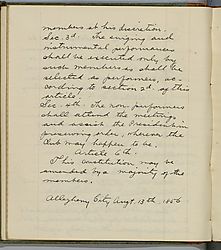 members at his discretion.
Sec. 3d. The singing and
instrumental performances
shall be executed only by
such members as shall be
selected as performers, ac-
cording to section 3d. of this
article.
Sec. 4th. The non. performers
shall attend the meetings
and assist the President in
preserving order, wherever the
Club may happen to be.
Article 6th.
This Constitution may be
amended by a majority of the
members.
Allegheny City, Augt. 13th 1856